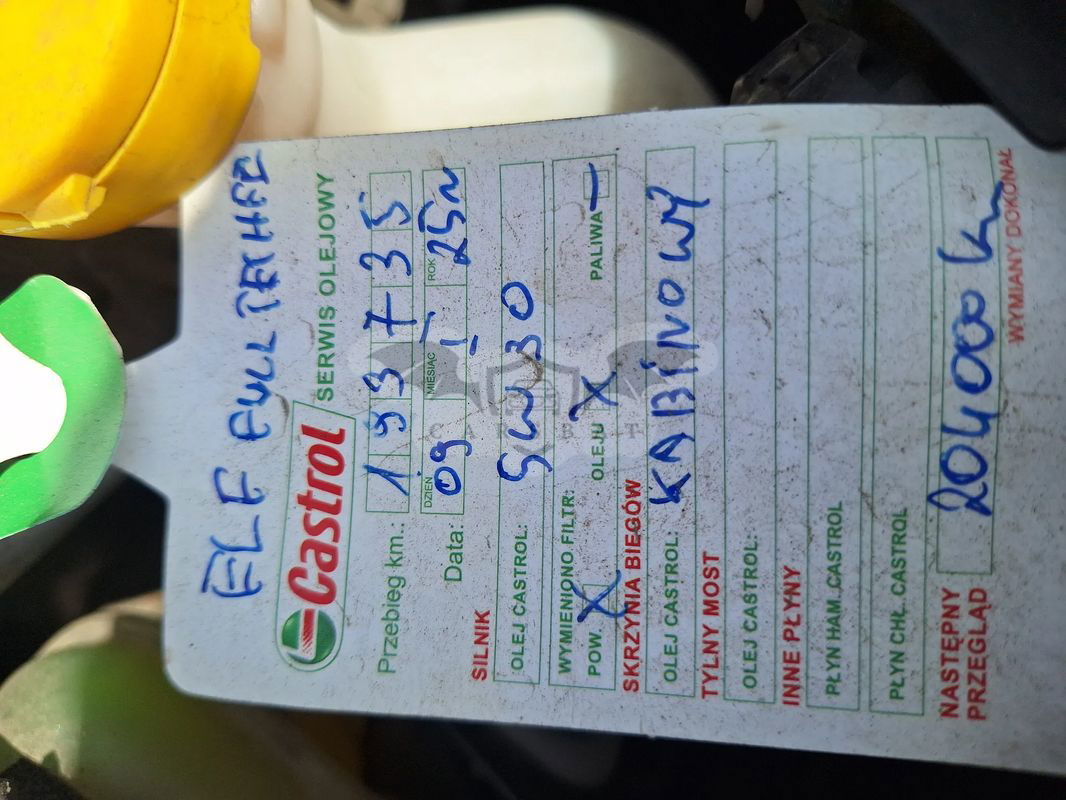 ELF FULLTECH FE
Castrol SERWIS OLEJOWY
Przebieg km.: 193735
DZIEŃ MIESIĄC ROK
Data: 09 II 25r
SILNIK
OLEJ CASTROL: 5W30
WYMIENIONO FILTR:
POW. X OLEJU X PALIWA –
SKRZYNIA BIEGÓW
OLEJ CASTROL: KABINOWY
TYLNY MOST
OLEJ CASTROL:
INNE PŁYNY
PŁYN HAM. CASTROL
PŁYN CHŁ. CASTROL
NASTĘPNY
PRZEGLĄD 204000 km
WYMIANY DOKONAŁ